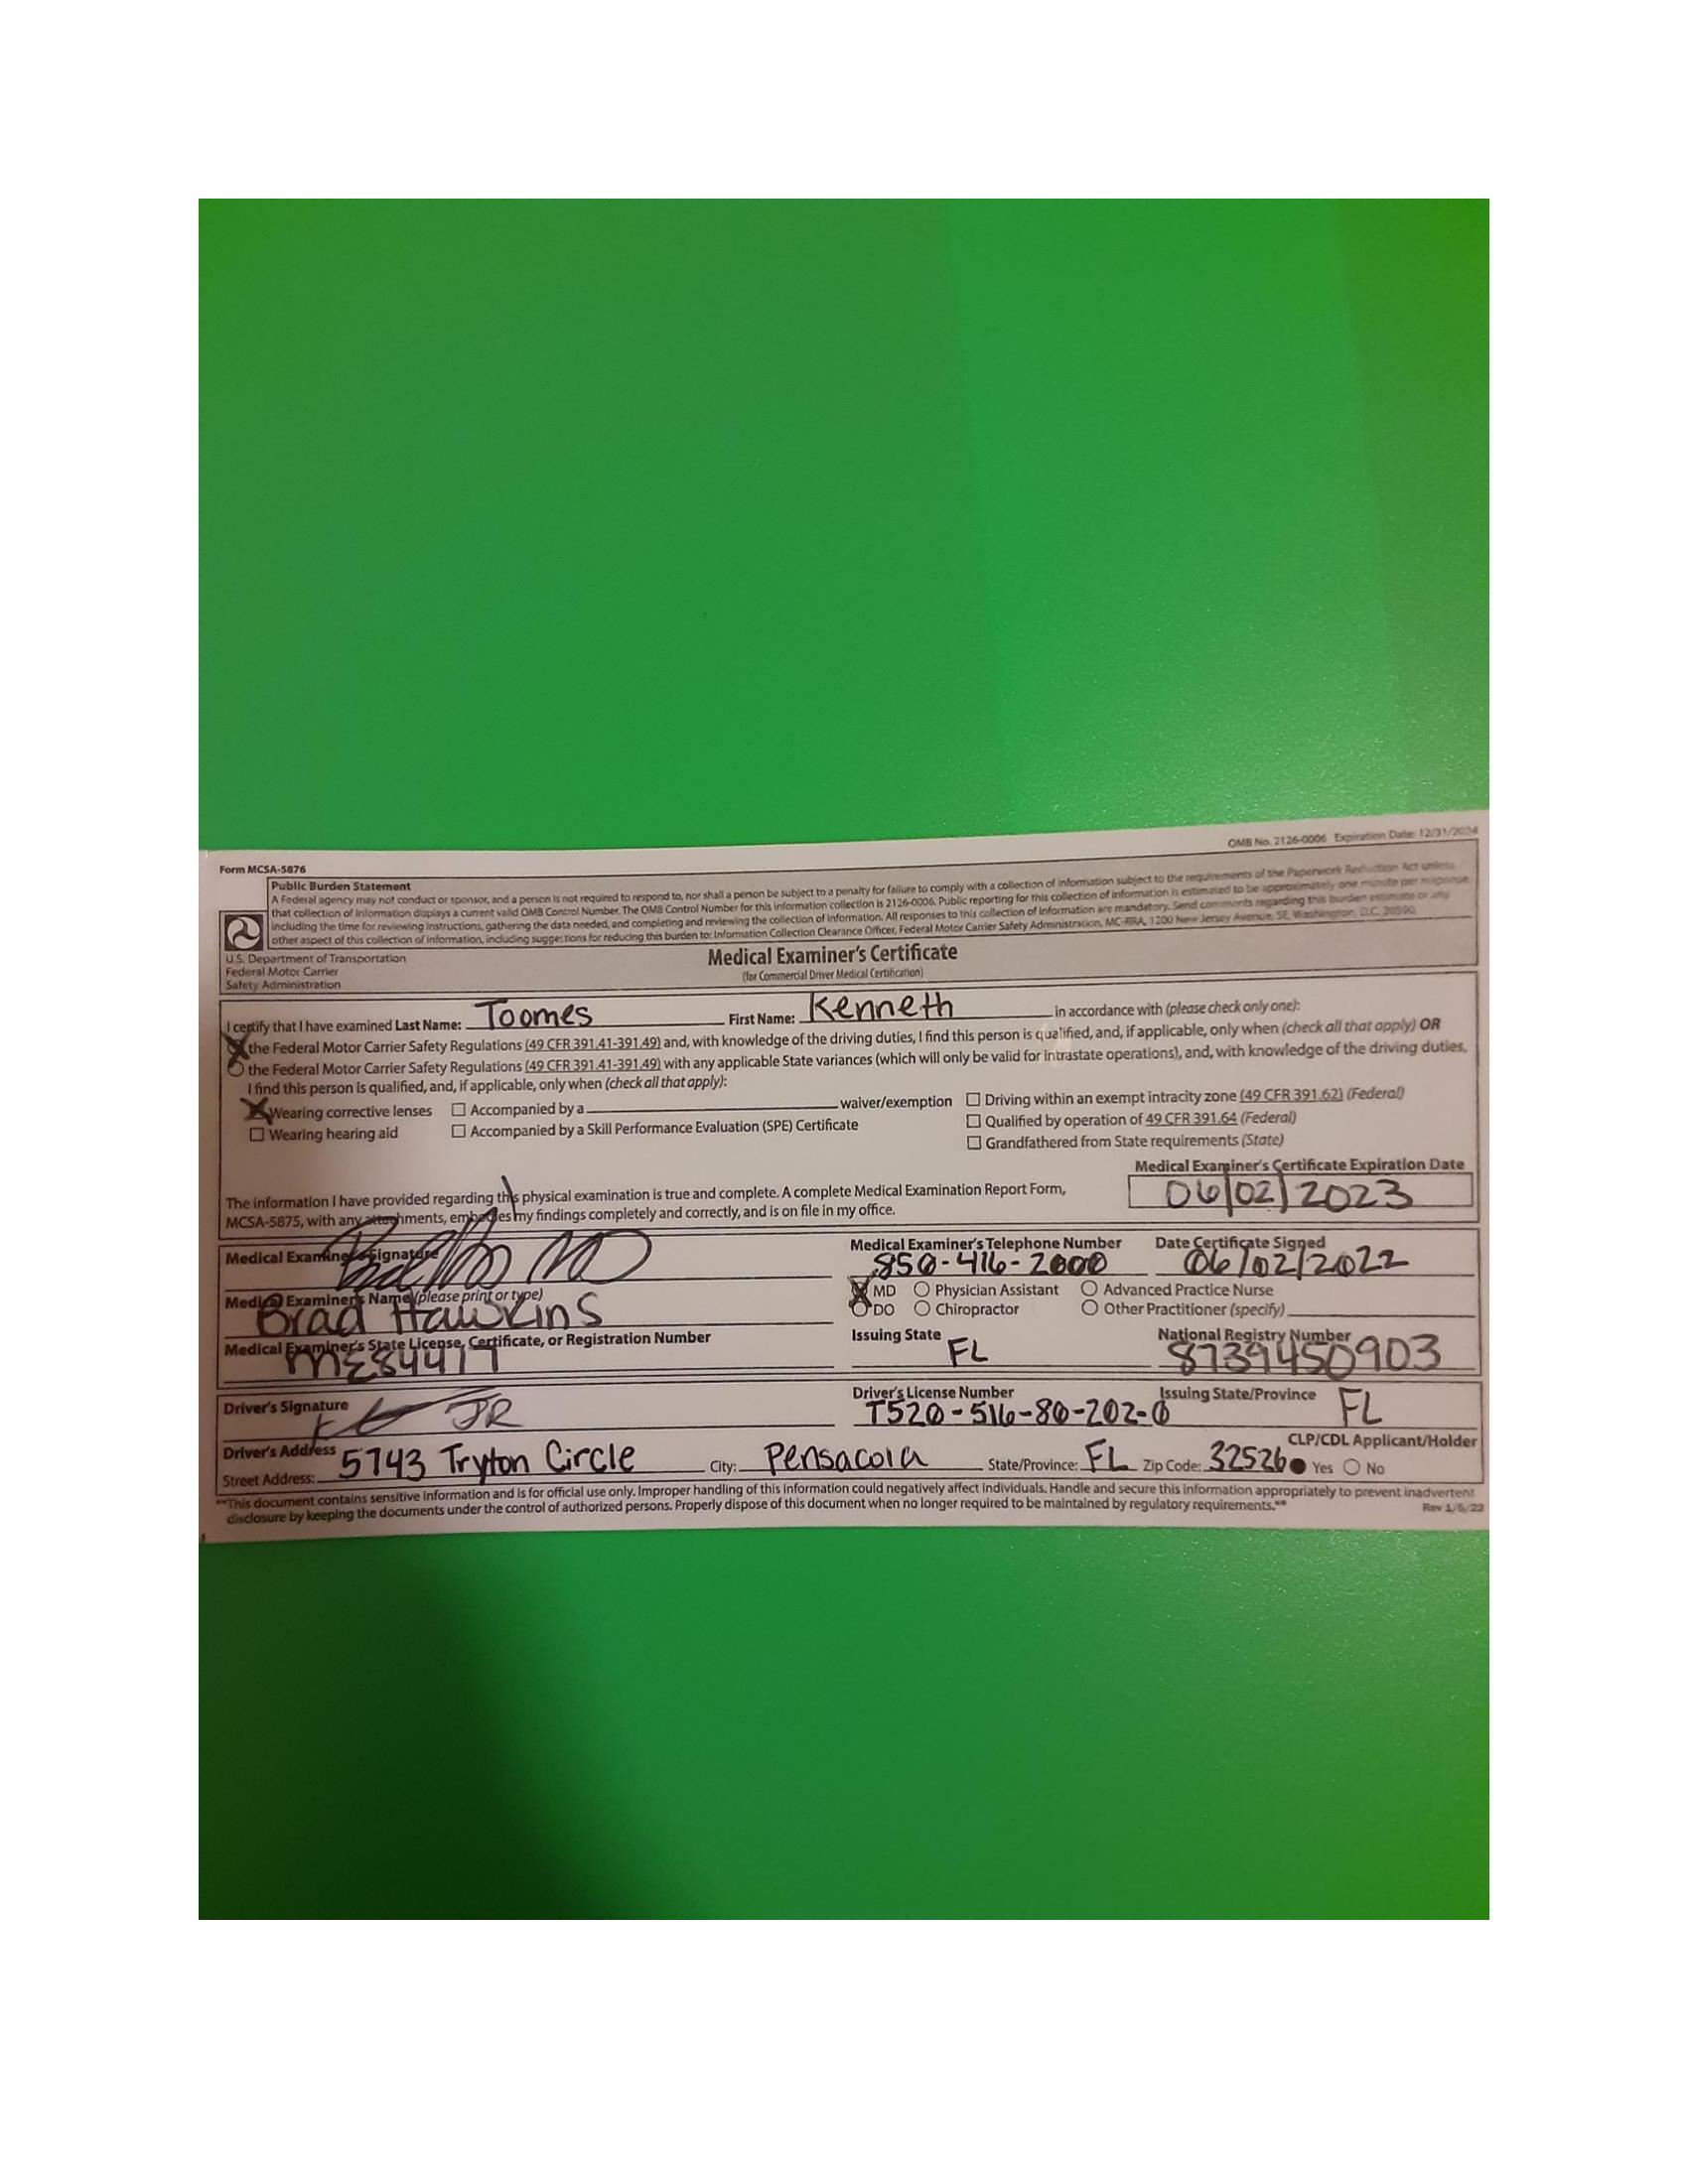 OMB No. 2126-0006 Expiration Date: 12/31/2024
Form MCSA-5876
Public Burden Statement
A Federal agency may not conduct or sponsor, and a person is not required to respond to, nor shall a person be subject to a penalty for failure to comply with a collection of information subject to the requirements of the Paperwork Reduction Act unless
that collection of information displays a current valid OMB Control Number. The OMB Control Number for this information collection is 2126-0006. Public reporting for this collection of information is estimated to be approximately one minute per response,
including the time for reviewing instructions, gathering the data needed, and completing and reviewing the collection of information. All responses to this collection of information are mandatory. Send comments regarding this burden estimate or any
other aspect of this collection of information, including suggestions for reducing this burden to: Information Collection Clearance Officer, Federal Motor Carrier Safety Administration, MC-RRA, 1200 New Jersey Avenue, SE, Washington, D.C. 20590.
U.S. Department of Transportation
Federal Motor Carrier
Safety Administration
Medical Examiner's Certificate
(for Commercial Driver Medical Certification)
I certify that I have examined Last Name: Toomes First Name: Kenneth in accordance with (please check only one):
the Federal Motor Carrier Safety Regulations (49 CFR 391.41-391.49) and, with knowledge of the driving duties, I find this person is qualified, and, if applicable, only when (check all that apply) OR
the Federal Motor Carrier Safety Regulations (49 CFR 391.41-391.49) with any applicable State variances (which will only be valid for intrastate operations), and, with knowledge of the driving duties,
I find this person is qualified, and, if applicable, only when (check all that apply):
Wearing corrective lenses Accompanied by a waiver/exemption Driving within an exempt intracity zone (49 CFR 391.62) (Federal)
Wearing hearing aid Accompanied by a Skill Performance Evaluation (SPE) Certificate Qualified by operation of 49 CFR 391.64 (Federal)
Grandfathered from State requirements (State)
Medical Examiner's Certificate Expiration Date
06/02/2023
The information I have provided regarding this physical examination is true and complete. A complete Medical Examination Report Form,
MCSA-5875, with any attachments, embodies my findings completely and correctly, and is on file in my office.
Medical Examiner's Signature Medical Examiner's Telephone Number Date Certificate Signed
MD 850-416-2000 06/02/2022
Medical Examiner's Name (please print or type) MD Physician Assistant Advanced Practice Nurse
Brad Hawkins DO Chiropractor Other Practitioner (specify)
Medical Examiner's State License, Certificate, or Registration Number Issuing State National Registry Number
ME84417 FL 8739450903
Driver's Signature Driver's License Number Issuing State/Province
JR T520-516-80-202-0 FL
Driver's Address CLP/CDL Applicant/Holder
Street Address: 5743 Tryton Circle City: Pensacola State/Province: FL Zip Code: 32526 Yes No
**This document contains sensitive information and is for official use only. Improper handling of this information could negatively affect individuals. Handle and secure this information appropriately to prevent inadvertent
disclosure by keeping the documents under the control of authorized persons. Properly dispose of this document when no longer required to be maintained by regulatory requirements.**
Rev 1/5/22